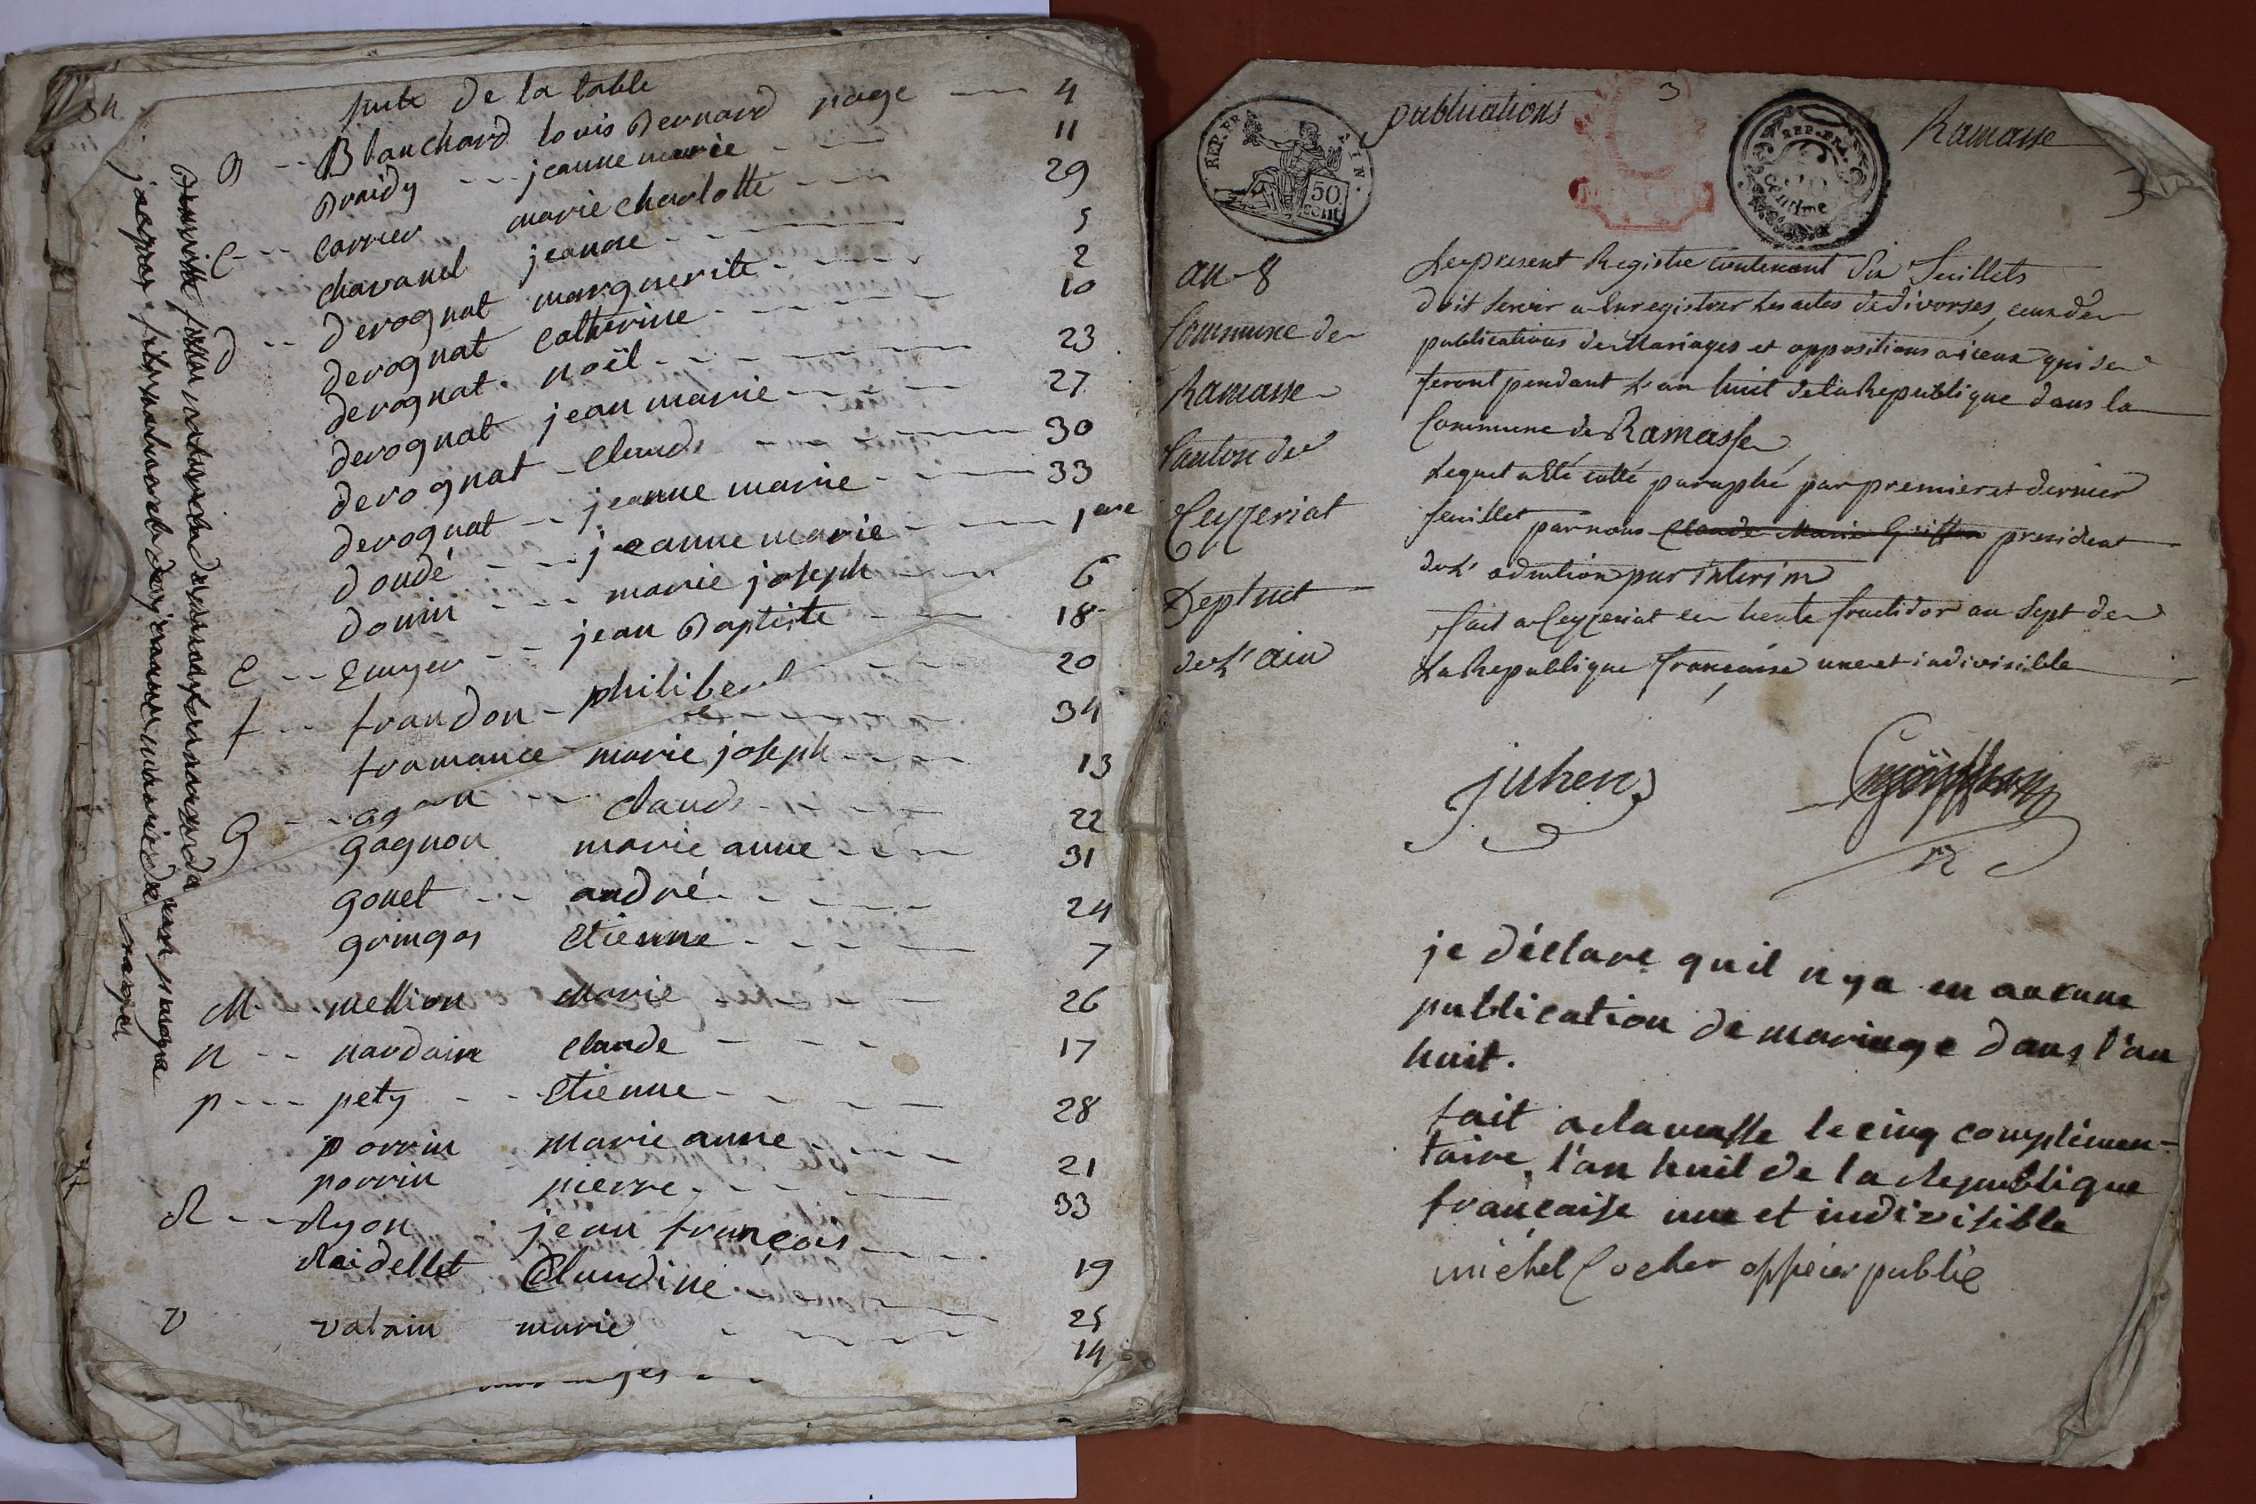 suite de la table
B -- Blanchard louis Bernard page -- 4
Braidy -- jeanne marie -- 11
C -- Carrier marie charlotte -- 29
chavanel jeanne -- 5
d -- derognat marguerite -- 2
derognat catherine -- 10
derognat noël -- 23
derognat jean marie -- 27
derognat -- claude -- 30
derognat -- jeanne marie -- 33
doudé -- jeanne marie -- 1ere
domin -- marie joseph -- 6
E -- Emyer -- jean Baptiste -- 18
f -- frandon -- philibert -- 20
framance marie joseph -- 34
G -- claude -- 13
gagnon marie anne -- 22
gonet -- andré -- 31
gringos Etienne -- 24
M. mellion Marie -- 7
n -- nardoin claude -- 26
p -- pety -- Etienne -- 17
porrin marie anne -- 28
porrin pierre -- 21
R -- Ryon jean françois -- 33
Reidellet Claudine -- 19
v valain marie -- 25
14
publications 3 Ramasse
3
REP. FR. AIN.
50 cent
REP. FRA.
centime
an 8
Commune de
Ramasse
Canton de
Ceyzeriat
Deptmt
de L'ain
Le present Registre contenant Six feuillets
doit servir a Enregistrer les actes de divorses, ceux de
publications de Mariages et oppositions a iceux qui se
feront pendant L'an huit de la Republique dans la
Commune de Ramasse
Lequel a été cotté paraphé par premier et dernier
feuillet par nous Claude Marie Griffon president
de L'admtion par interim
fait a Ceyzeriat le trente fructidor an Sept de
La Republique françaize une et indivisible
je déclare qu'il n'y a eu aucune
publication de mariage dans l'an
huit.
fait a la masse le cinq complémen-
taire, l'an huit de la Republique
française une et indivisible
michel Cocher officier public